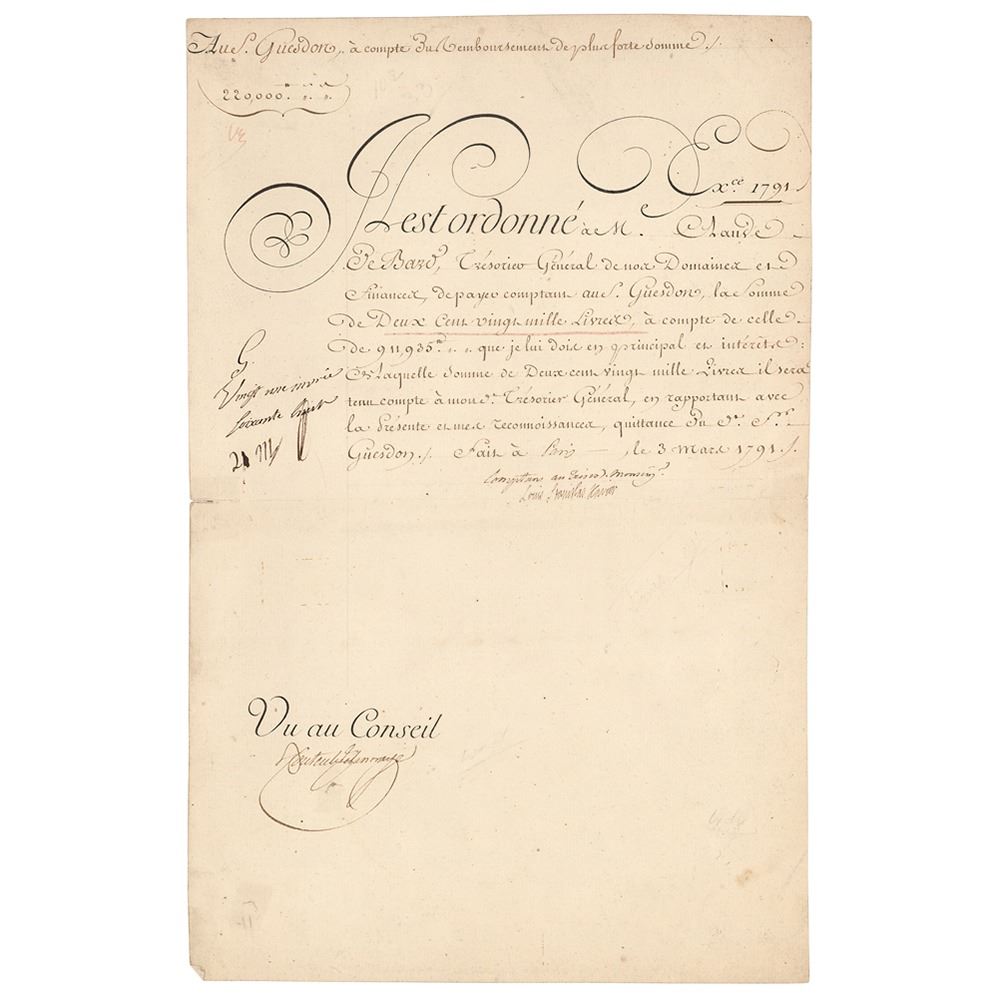 Au S. Guesdon, à compte du Remboursement de plus forte Somme ./.
220,000.
Ex.ce 1791
Il est ordonné à M.e Claude
De Bard, Trésorier Général de nos Domaines et
Finances, de payer comptant au S. Guesdon, la Somme
de Deux Cent vingt mille Livres, à compte de celle
de 911,935.tt „ „ que je lui dois en principal et intérêts:
De laquelle Somme de Deux cent vingt mille Livres il sera
tenu compte à mon d. Trésorier Général, en rapportant avec
la Présente et mes reconnoissances, quittance du d. S.r
Guesdon ./. Fait à Paris, le 3 Mars 1791 ./.
Comptant au
Louis Stanislas Xavier
G.
Vingt une
soixante
Vu au Conseil